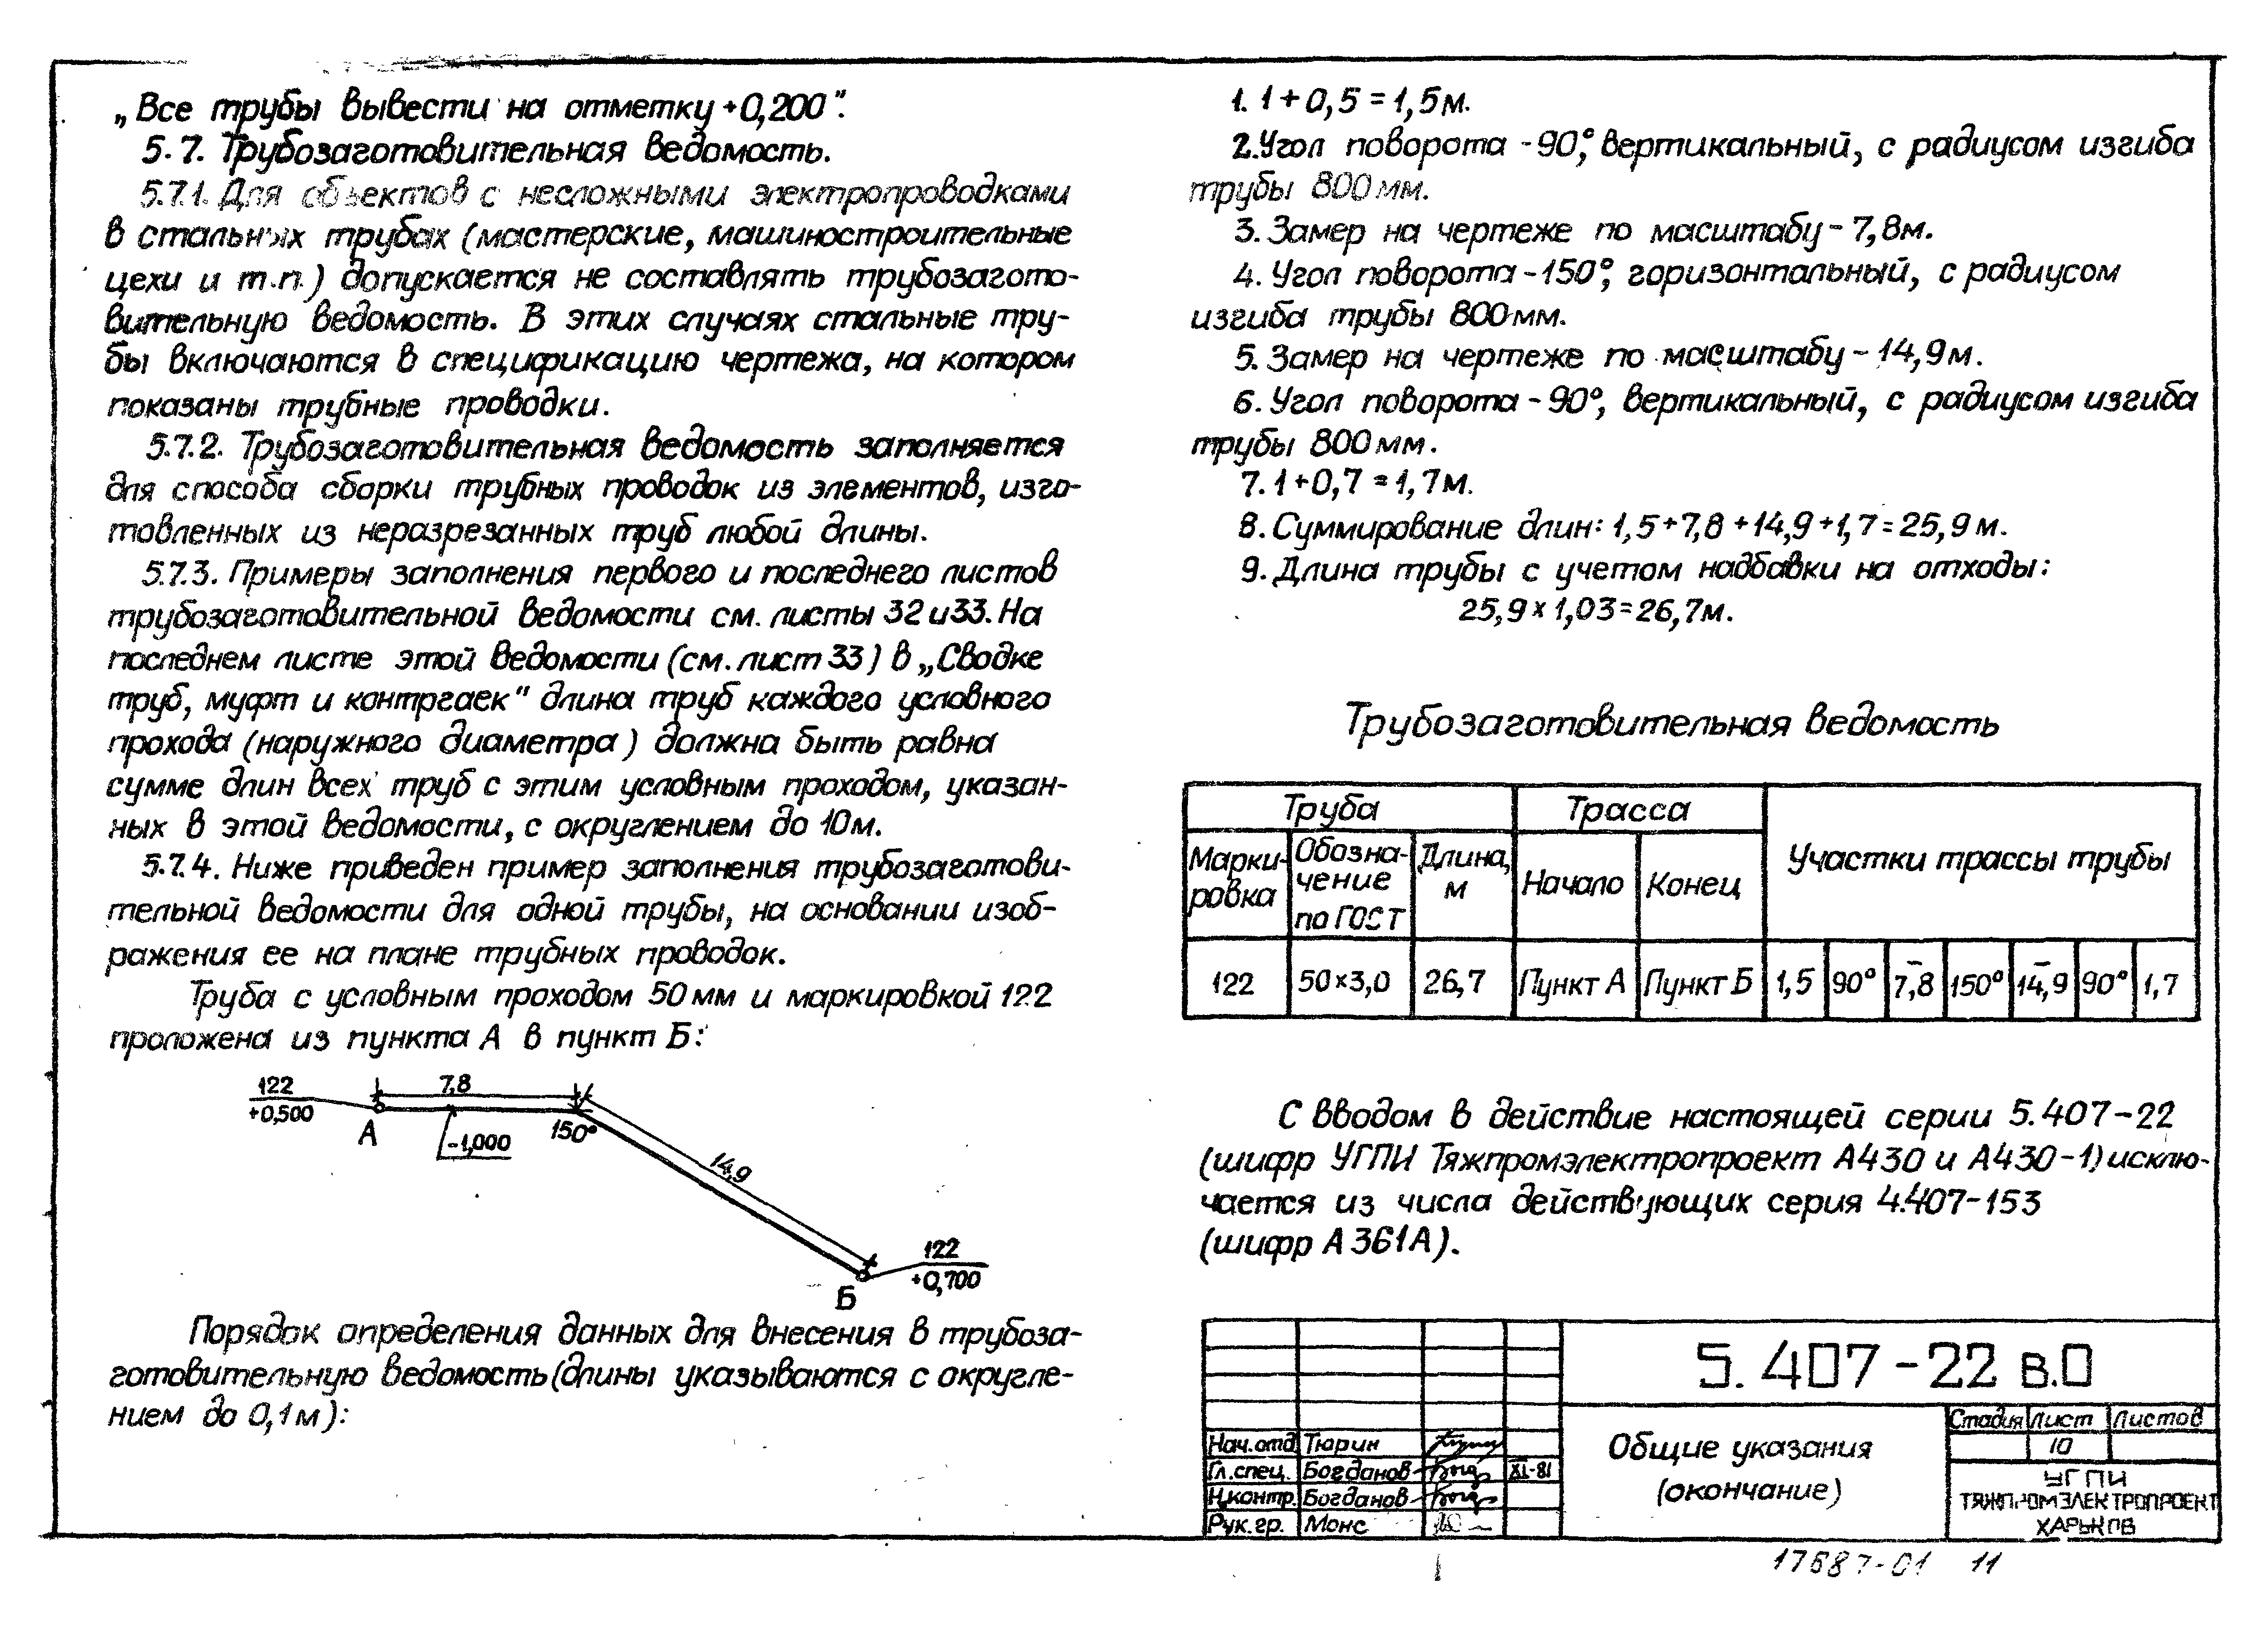 „Все трубы вывести на отметку +0,200".
5.7. Трубозаготовительная ведомость.
5.7.1. Для объектов с несложными электропроводками
в стальных трубах (мастерские, машиностроительные
цехи и т.п.) допускается не составлять трубозагото-
вительную ведомость. В этих случаях стальные тру-
бы включаются в спецификацию чертежа, на котором
показаны трубные проводки.
5.7.2. Трубозаготовительная ведомость заполняется
для способа сборки трубных проводок из элементов, изго-
товленных из неразрезанных труб любой длины.
5.7.3. Примеры заполнения первого и последнего листов
трубозаготовительной ведомости см. листы 32 и 33. На
последнем листе этой ведомости (см. лист 33) в „Сводке
труб, муфт и контргаек" длина труб каждого условного
прохода (наружного диаметра) должна быть равна
сумме длин всех труб с этим условным проходом, указан-
ных в этой ведомости, с округлением до 10м.
5.7.4. Ниже приведен пример заполнения трубозаготови-
тельной ведомости для одной трубы, на основании изоб-
ражения ее на плане трубных проводок.
Труба с условным проходом 50 мм и маркировкой 122
проложена из пункта А в пункт Б:
122
+0,500
А
7,8
-1,000
150°
14,9
Б
122
+0,700
Порядок определения данных для внесения в трубоза-
готовительную ведомость (длины указываются с округле-
нием до 0,1 м):
1. 1 + 0,5 = 1,5 м.
2. Угол поворота - 90°, вертикальный, с радиусом изгиба
трубы 800 мм.
3. Замер на чертеже по масштабу - 7,8м.
4. Угол поворота - 150°, горизонтальный, с радиусом
изгиба трубы 800 мм.
5. Замер на чертеже по масштабу - 14,9 м.
6. Угол поворота - 90°, вертикальный, с радиусом изгиба
трубы 800 мм.
7. 1 + 0,7 = 1,7 м.
8. Суммирование длин: 1,5 + 7,8 + 14,9 + 1,7 = 25,9 м.
9. Длина трубы с учетом надбавки на отходы:
25,9 × 1,03 = 26,7 м.
Трубозаготовительная ведомость
Труба Трасса Участки трассы трубы
Марки-
ровка
Обозна-
чение
по ГОСТ
Длина,
м
Начало Конец
122 50×3,0 26,7 Пункт А Пункт Б 1,5 90° 7,8 150° 14,9 90° 1,7
С вводом в действие настоящей серии 5.407-22
(шифр УГПИ Тяжпромэлектропроект А430 и А430-1) исклю-
чается из числа действующих серия 4.407-153
(шифр А 361А).
5.407-22 в.0
Нач.отд. Тюрин
Гл.спец. Богданов XI-81
Н.контр. Богданов
Рук.гр. Монс
Общие указания
(окончание)
Стадия Лист Листов
10
УГПИ
ТЯЖПРОМЭЛЕКТРОПРОЕКТ
ХАРЬКОВ
17687-01 11